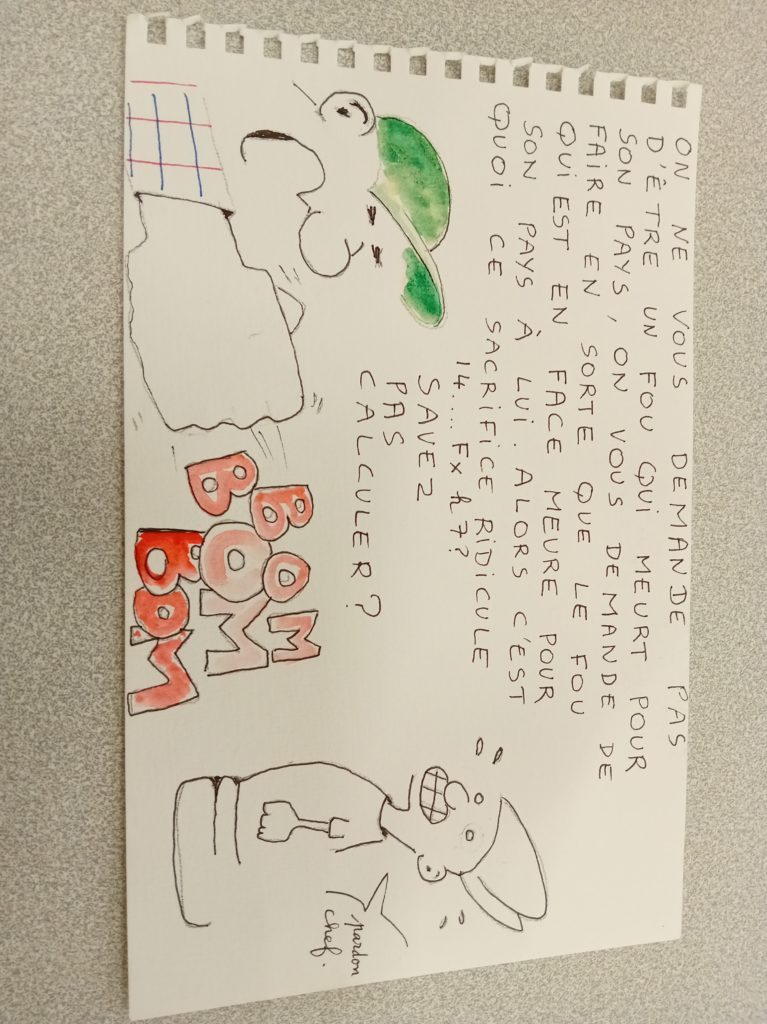 ON NE VOUS DEMANDE PAS
D'ÊTRE UN FOU QUI MEURT POUR
SON PAYS, ON VOUS DEMANDE DE
FAIRE EN SORTE QUE LE FOU
QUI EST EN FACE MEURE POUR
SON PAYS À LUI. ALORS C'EST
QUOI CE SACRIFICE RIDICULE
14.... Fxh7??
SAVEZ
PAS
CALCULER?
BOM
BOM
BOM
pardon
chef.